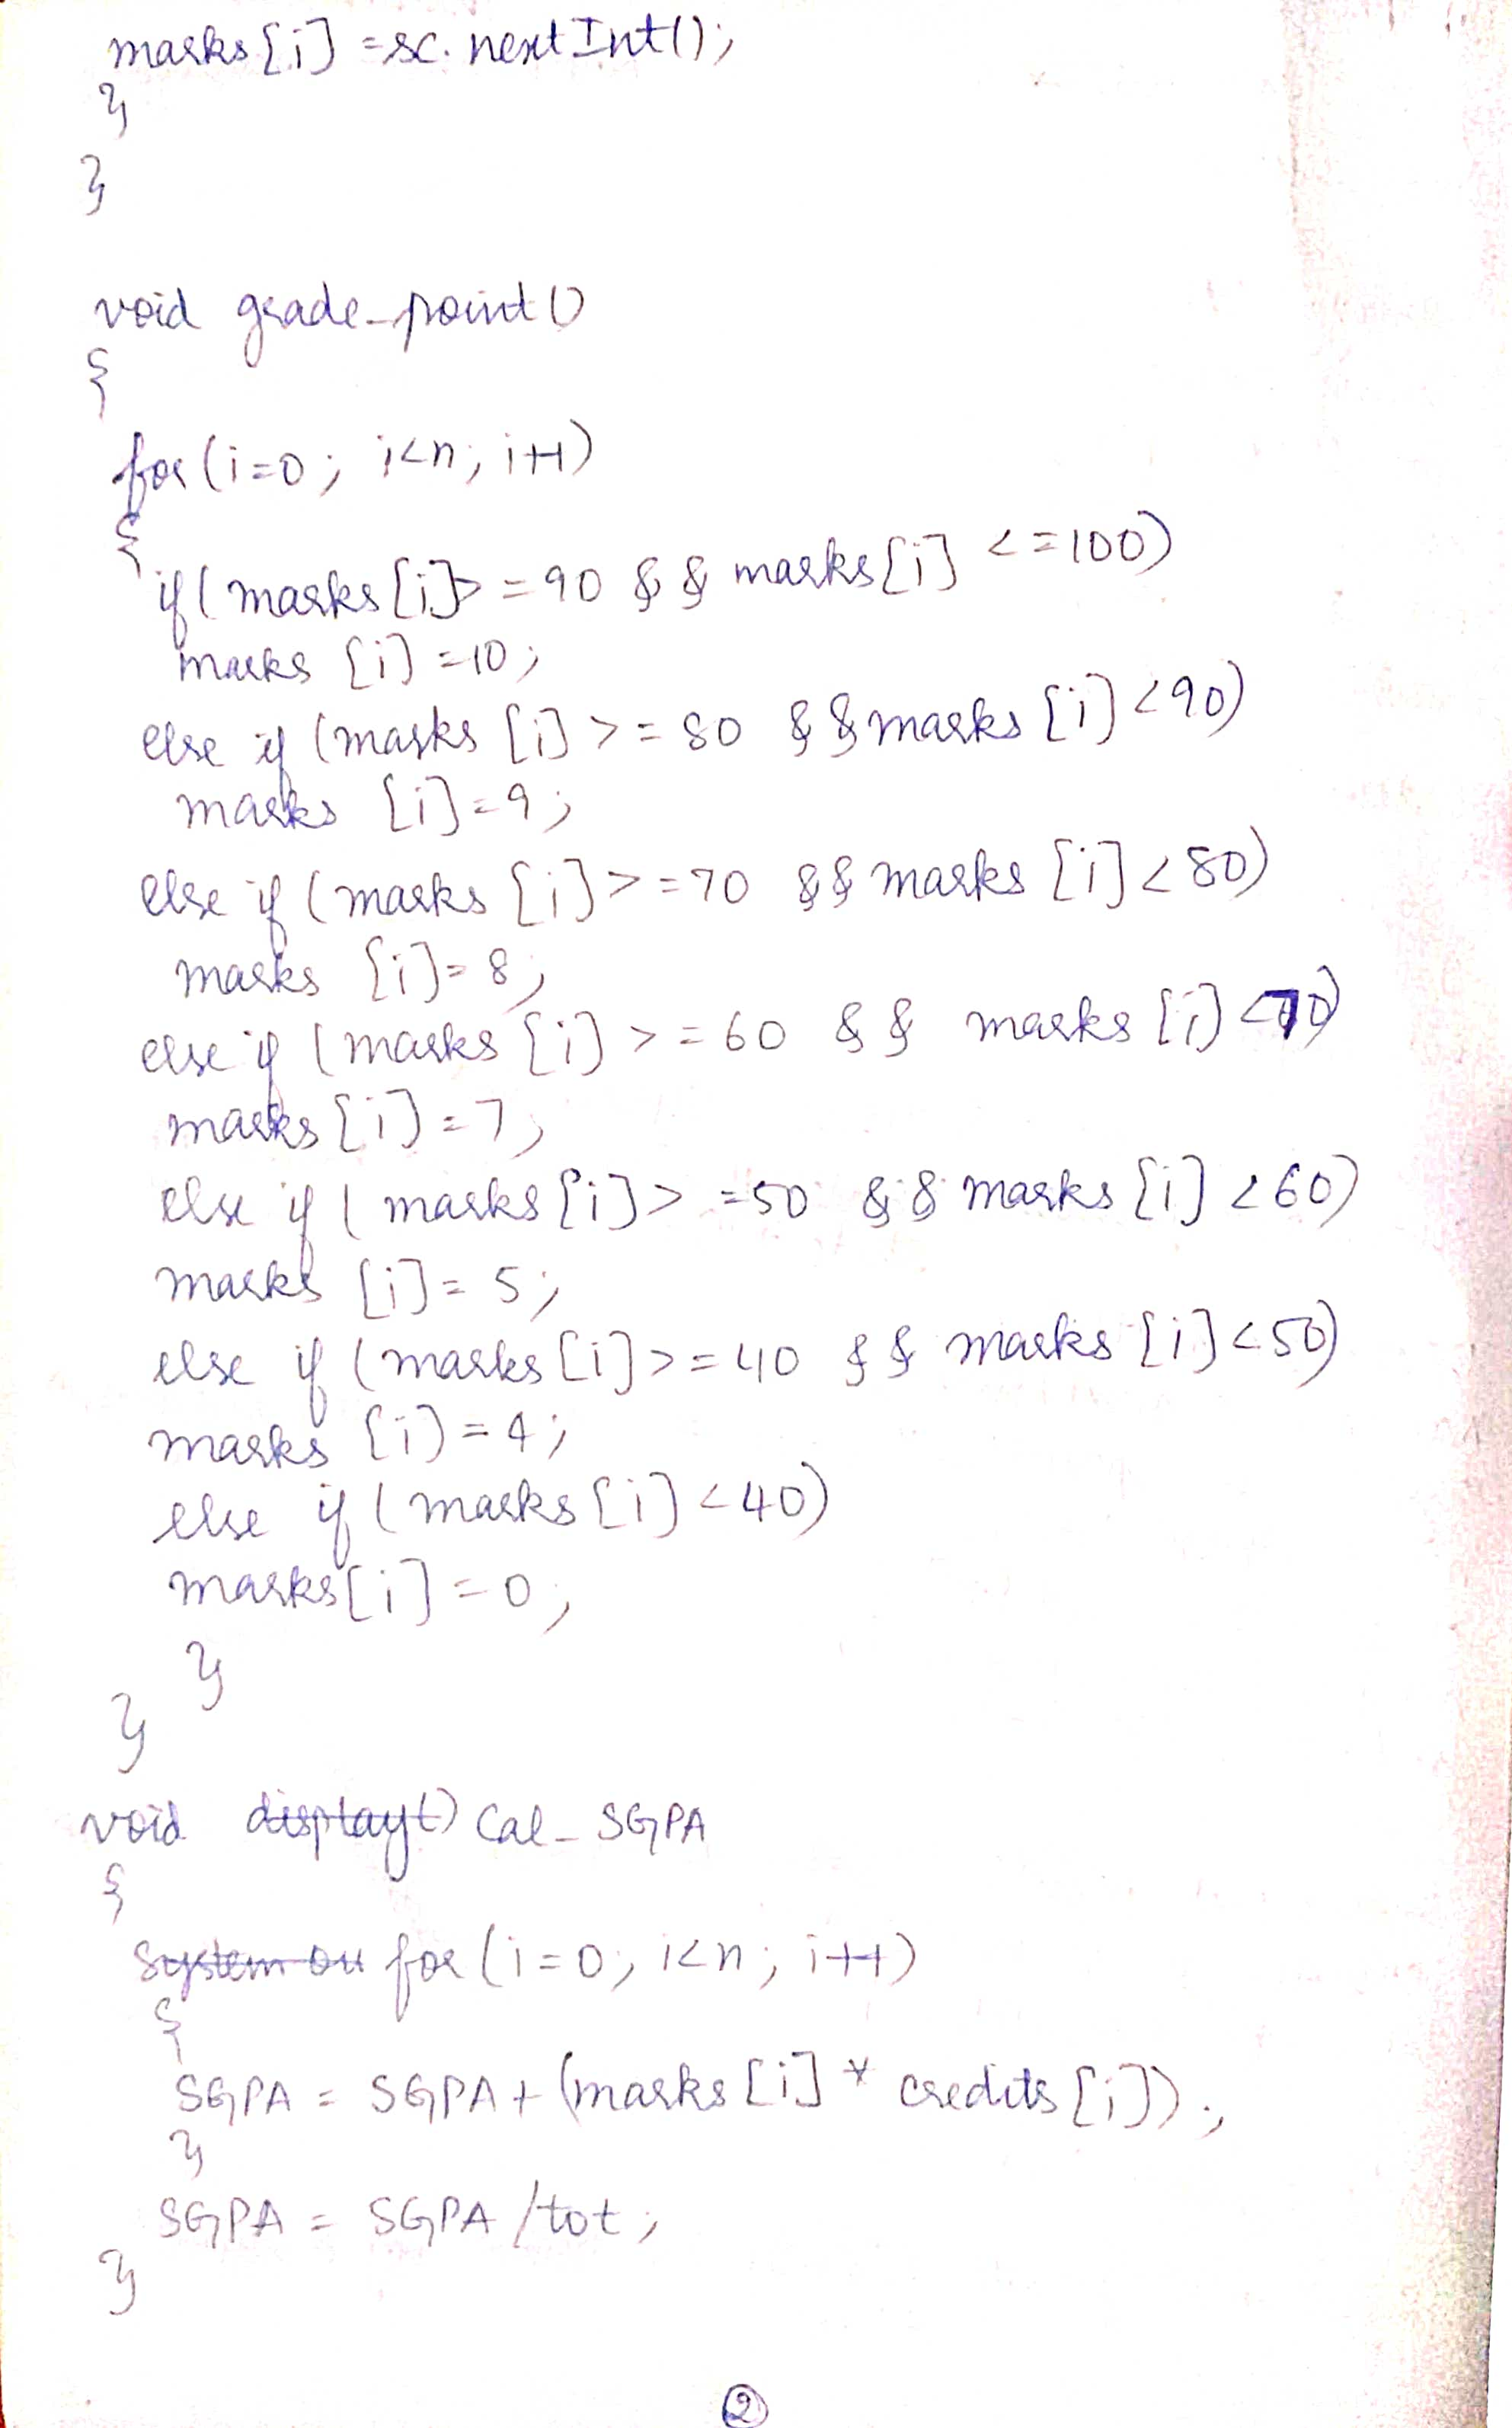 marks [i] = sc. nextInt();
}
}
void grade_point()
{
for (i=0; i<n; i++)
{
if ( marks [i] >= 90 && marks [i] <= 100)
marks [i] = 10;
else if (marks [i] >= 80 && marks [i] < 90)
marks [i] = 9;
else if (marks [i] >= 70 && marks [i] < 80)
marks [i] = 8;
else if (marks [i] >= 60 && marks [i] < 70)
marks [i] = 7;
else if ( marks [i] >= 50 && marks [i] < 60)
marks [i] = 5;
else if (marks [i] >= 40 && marks [i] < 50)
marks [i] = 4;
else if ( marks [i] < 40)
marks [i] = 0;
}
}
void display() Cal_SGPA
{
System ou for (i=0; i<n; i++)
{
SGPA = SGPA + (marks [i] * credits [i]);
}
SGPA = SGPA / tot;
}
2